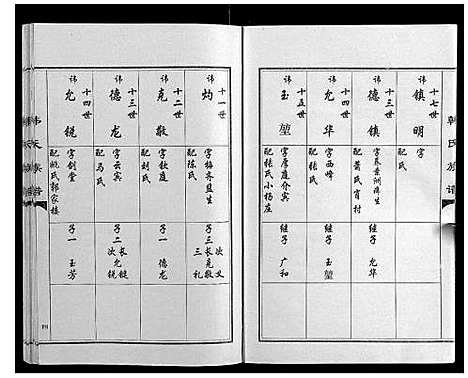 韩氏族谱
十七世
讳 镇明
字
配 氏
十三世
讳 德镇
配萧氏肖村
继子 允华
十四世
讳 允华
字西峰
配张氏
继子 玉堃
十五世
讳 玉堃
字厚庭介宾
配张氏小杨庄
继子 广和
十一世
讳 灼
字梅齐监生
配陈氏
子三 长克敬 次义 三礼
十二世
讳 克敬
字钦庭
配刘氏
子一 德龙
十三世
讳 德龙
字云宾
配马氏
子二 长允键 次允锐
十四世
讳 允锐
字剑堂
配姚氏郭家楼
子一 玉芳